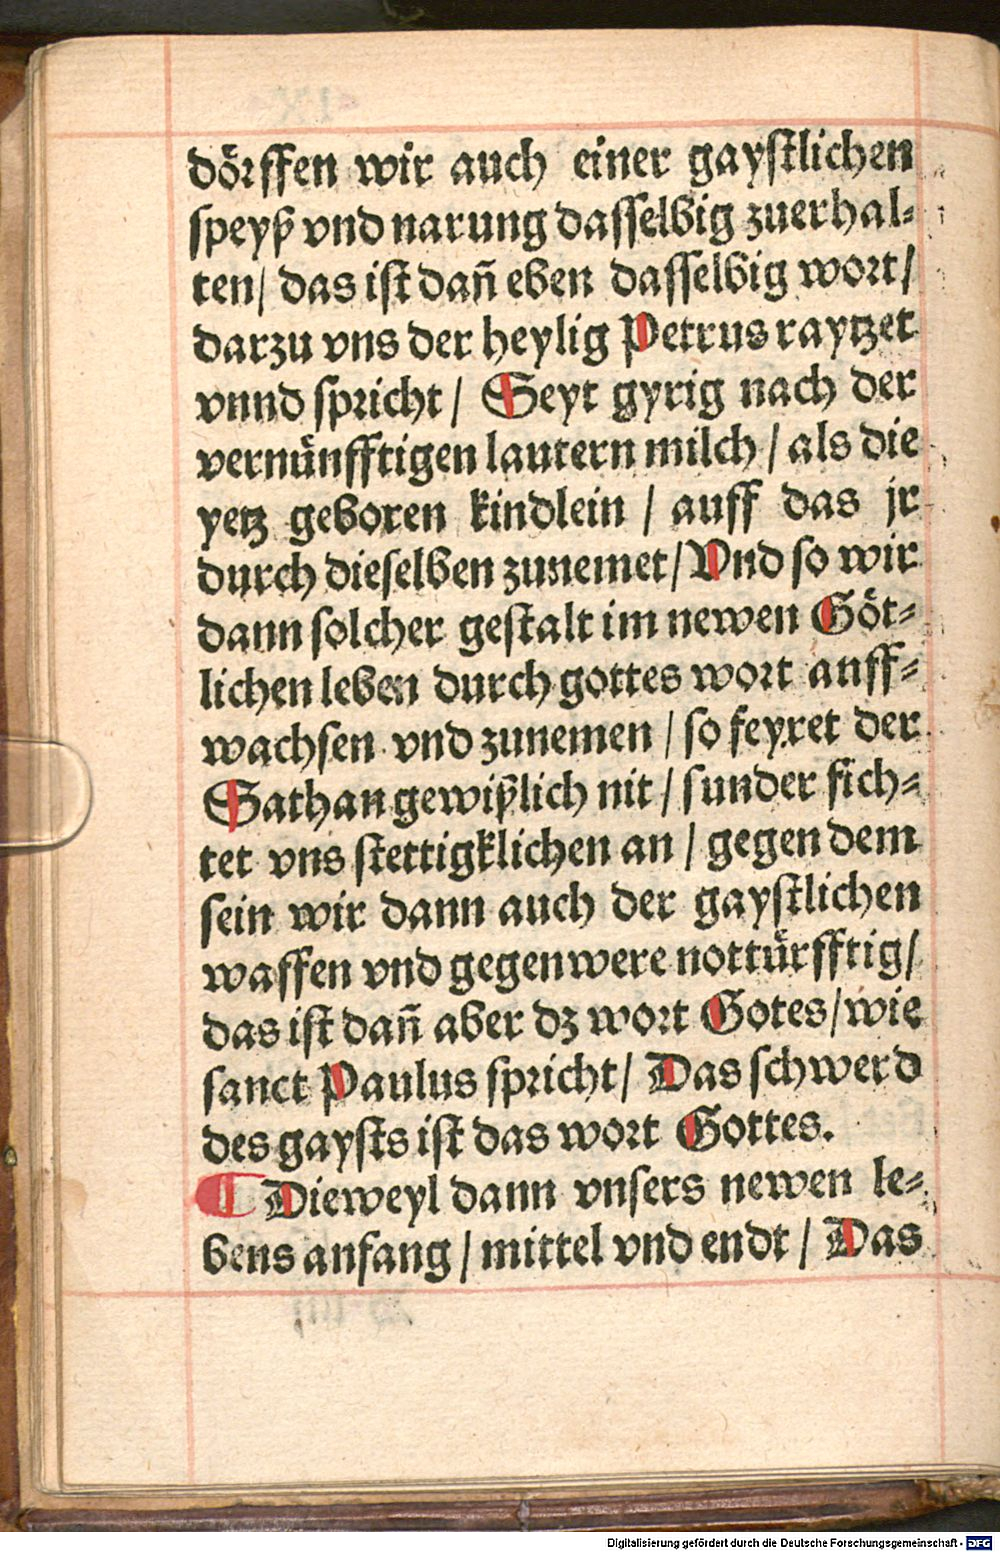 dörffen wir auch einer gaystlichen
speyß vnd narung dasselbig zuerhal⸗
ten/ das ist dañ eben dasselbig wort/
darzu vns der heylig Petrus raytzet
vnnd spricht/ Seyt gyrig nach der
vernünfftigen lautern milch/ als die
yetz geboren kindlein/ auff das jr
durch dieselben zunemet/ Vnd so wir
dann solcher gestalt im newen Göt⸗
lichen leben durch gottes wort auff⸗
wachsen vnd zunemen/ so feyret der
Sathan gewißlich nit/ sunder fich⸗
tet vns stettigklichen an/ gegen dem
sein wir dann auch der gaystlichen
waffen vnd gegenwere nottürfftig/
das ist dañ aber dz wort Gotes/ wie
sanct Paulus spricht/ Das schwerd
des gaysts ist das wort Gottes.
¶ Dieweyl dann vnsers newen le⸗
bens anfang/ mittel vnd endt/ Das
Digitalisierung gefördert durch die Deutsche Forschungsgemeinschaft - DFG